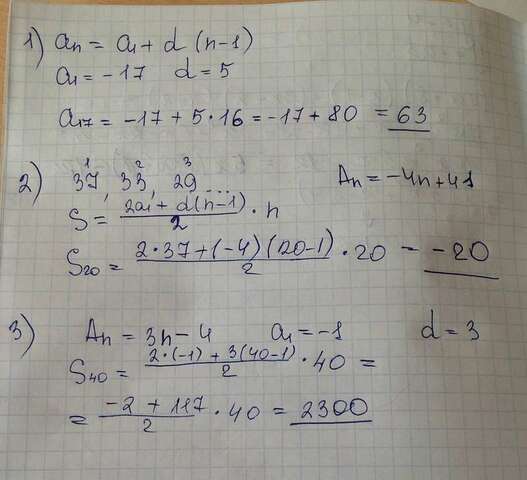 1) an = a1 + d (n-1)
a1 = -17 d = 5
a17 = -17 + 5·16 = -17 + 80 = 63
2) 37, 33, 29 ... An = -4n+41
1 2 3
S = (2a1 + d(n-1))/2 · n
S20 = (2·37+(-4)(20-1))/2 · 20 = -20
3) An = 3n-4 a1 = -1 d = 3
S40 = (2·(-1) + 3(40-1))/2 · 40 =
= (-2 + 117)/2 · 40 = 2300